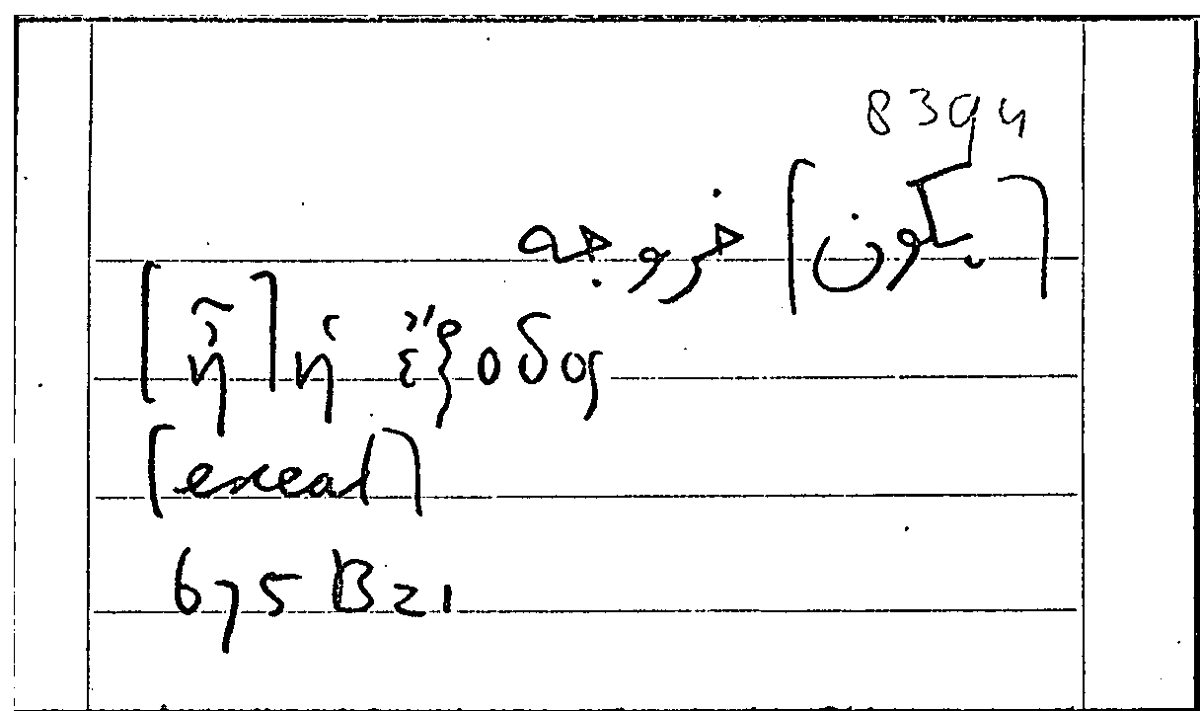 8394
[يكون] خروجه
[ἦ] ἡ ἔξοδος
[exeat]
675 B21